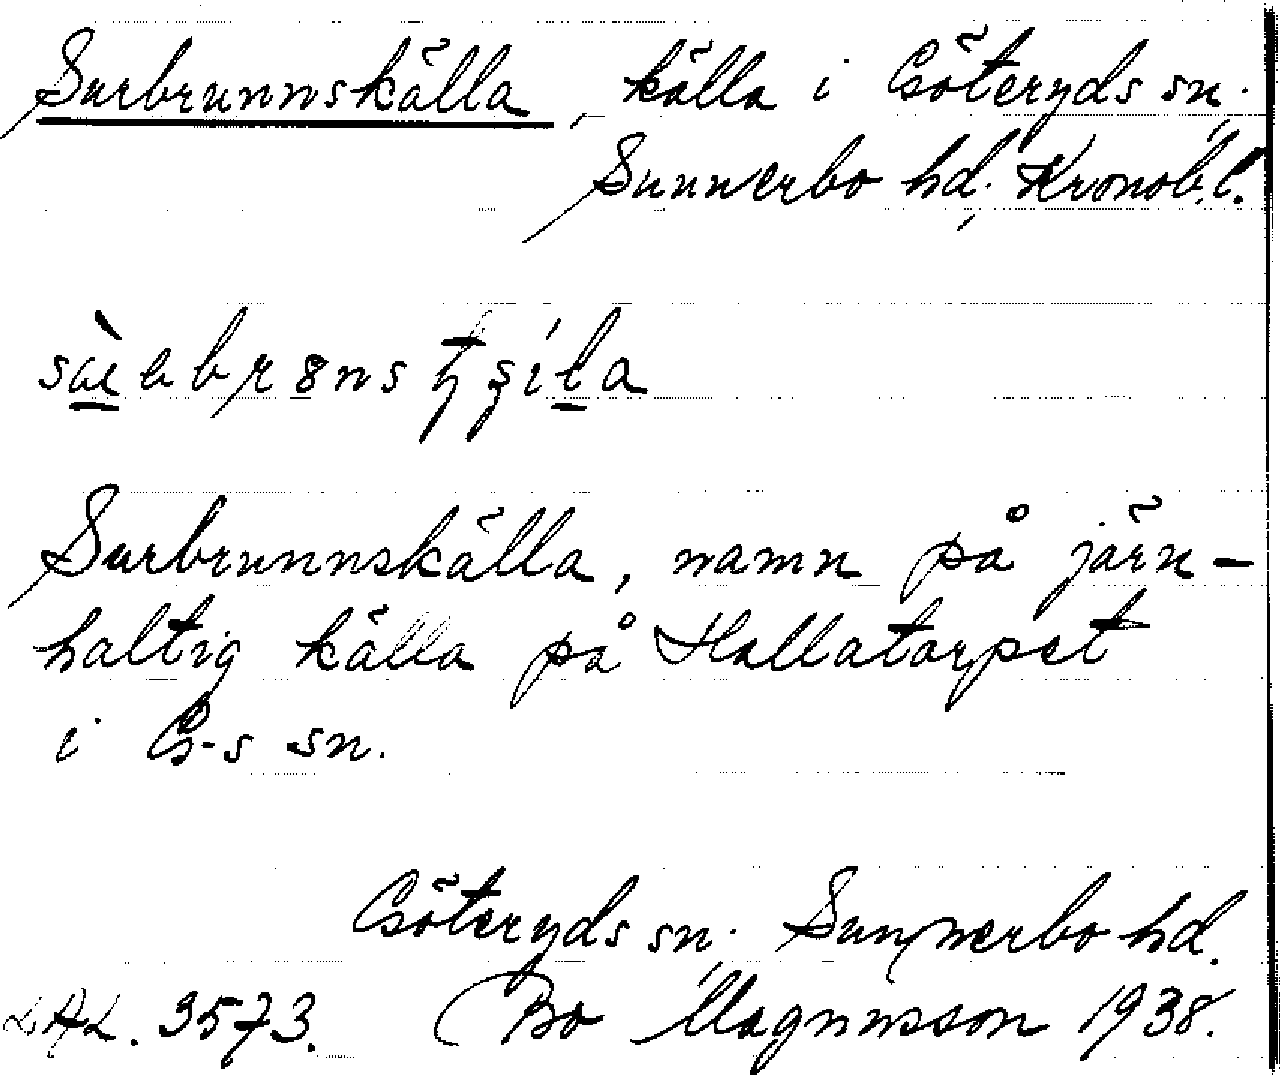 Surbrunnskälla, källa i Göteryds sn,
Sunnerbo hd, Kronob.l.
Surbrunnskälla, namn på järn-
haltig källa på Hallatorpet
i G-s sn.
Göteryds sn. Sunnerbo hd.
LAL. 3573. Bo Magnusson 1938.